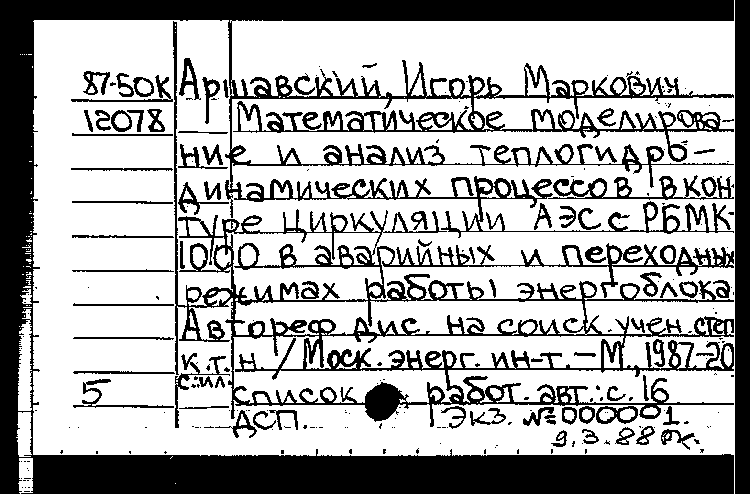 87-50К Аршавский, Игорь Маркович.
12078 Математическое моделирова-
ние и анализ теплогидро-
динамических процессов в кон-
туре циркуляции АЭС с РБМК-
1000 в аварийных и переходных
режимах работы энергоблока.
Автореф. дис. на соиск. учен. степ.
к.т.н. / Моск. энерг. ин-т. - М., 1987.-20
с.:ил.
5 список работ. авт.: с. 16
ДСП. Экз. №000001.
9.3.88